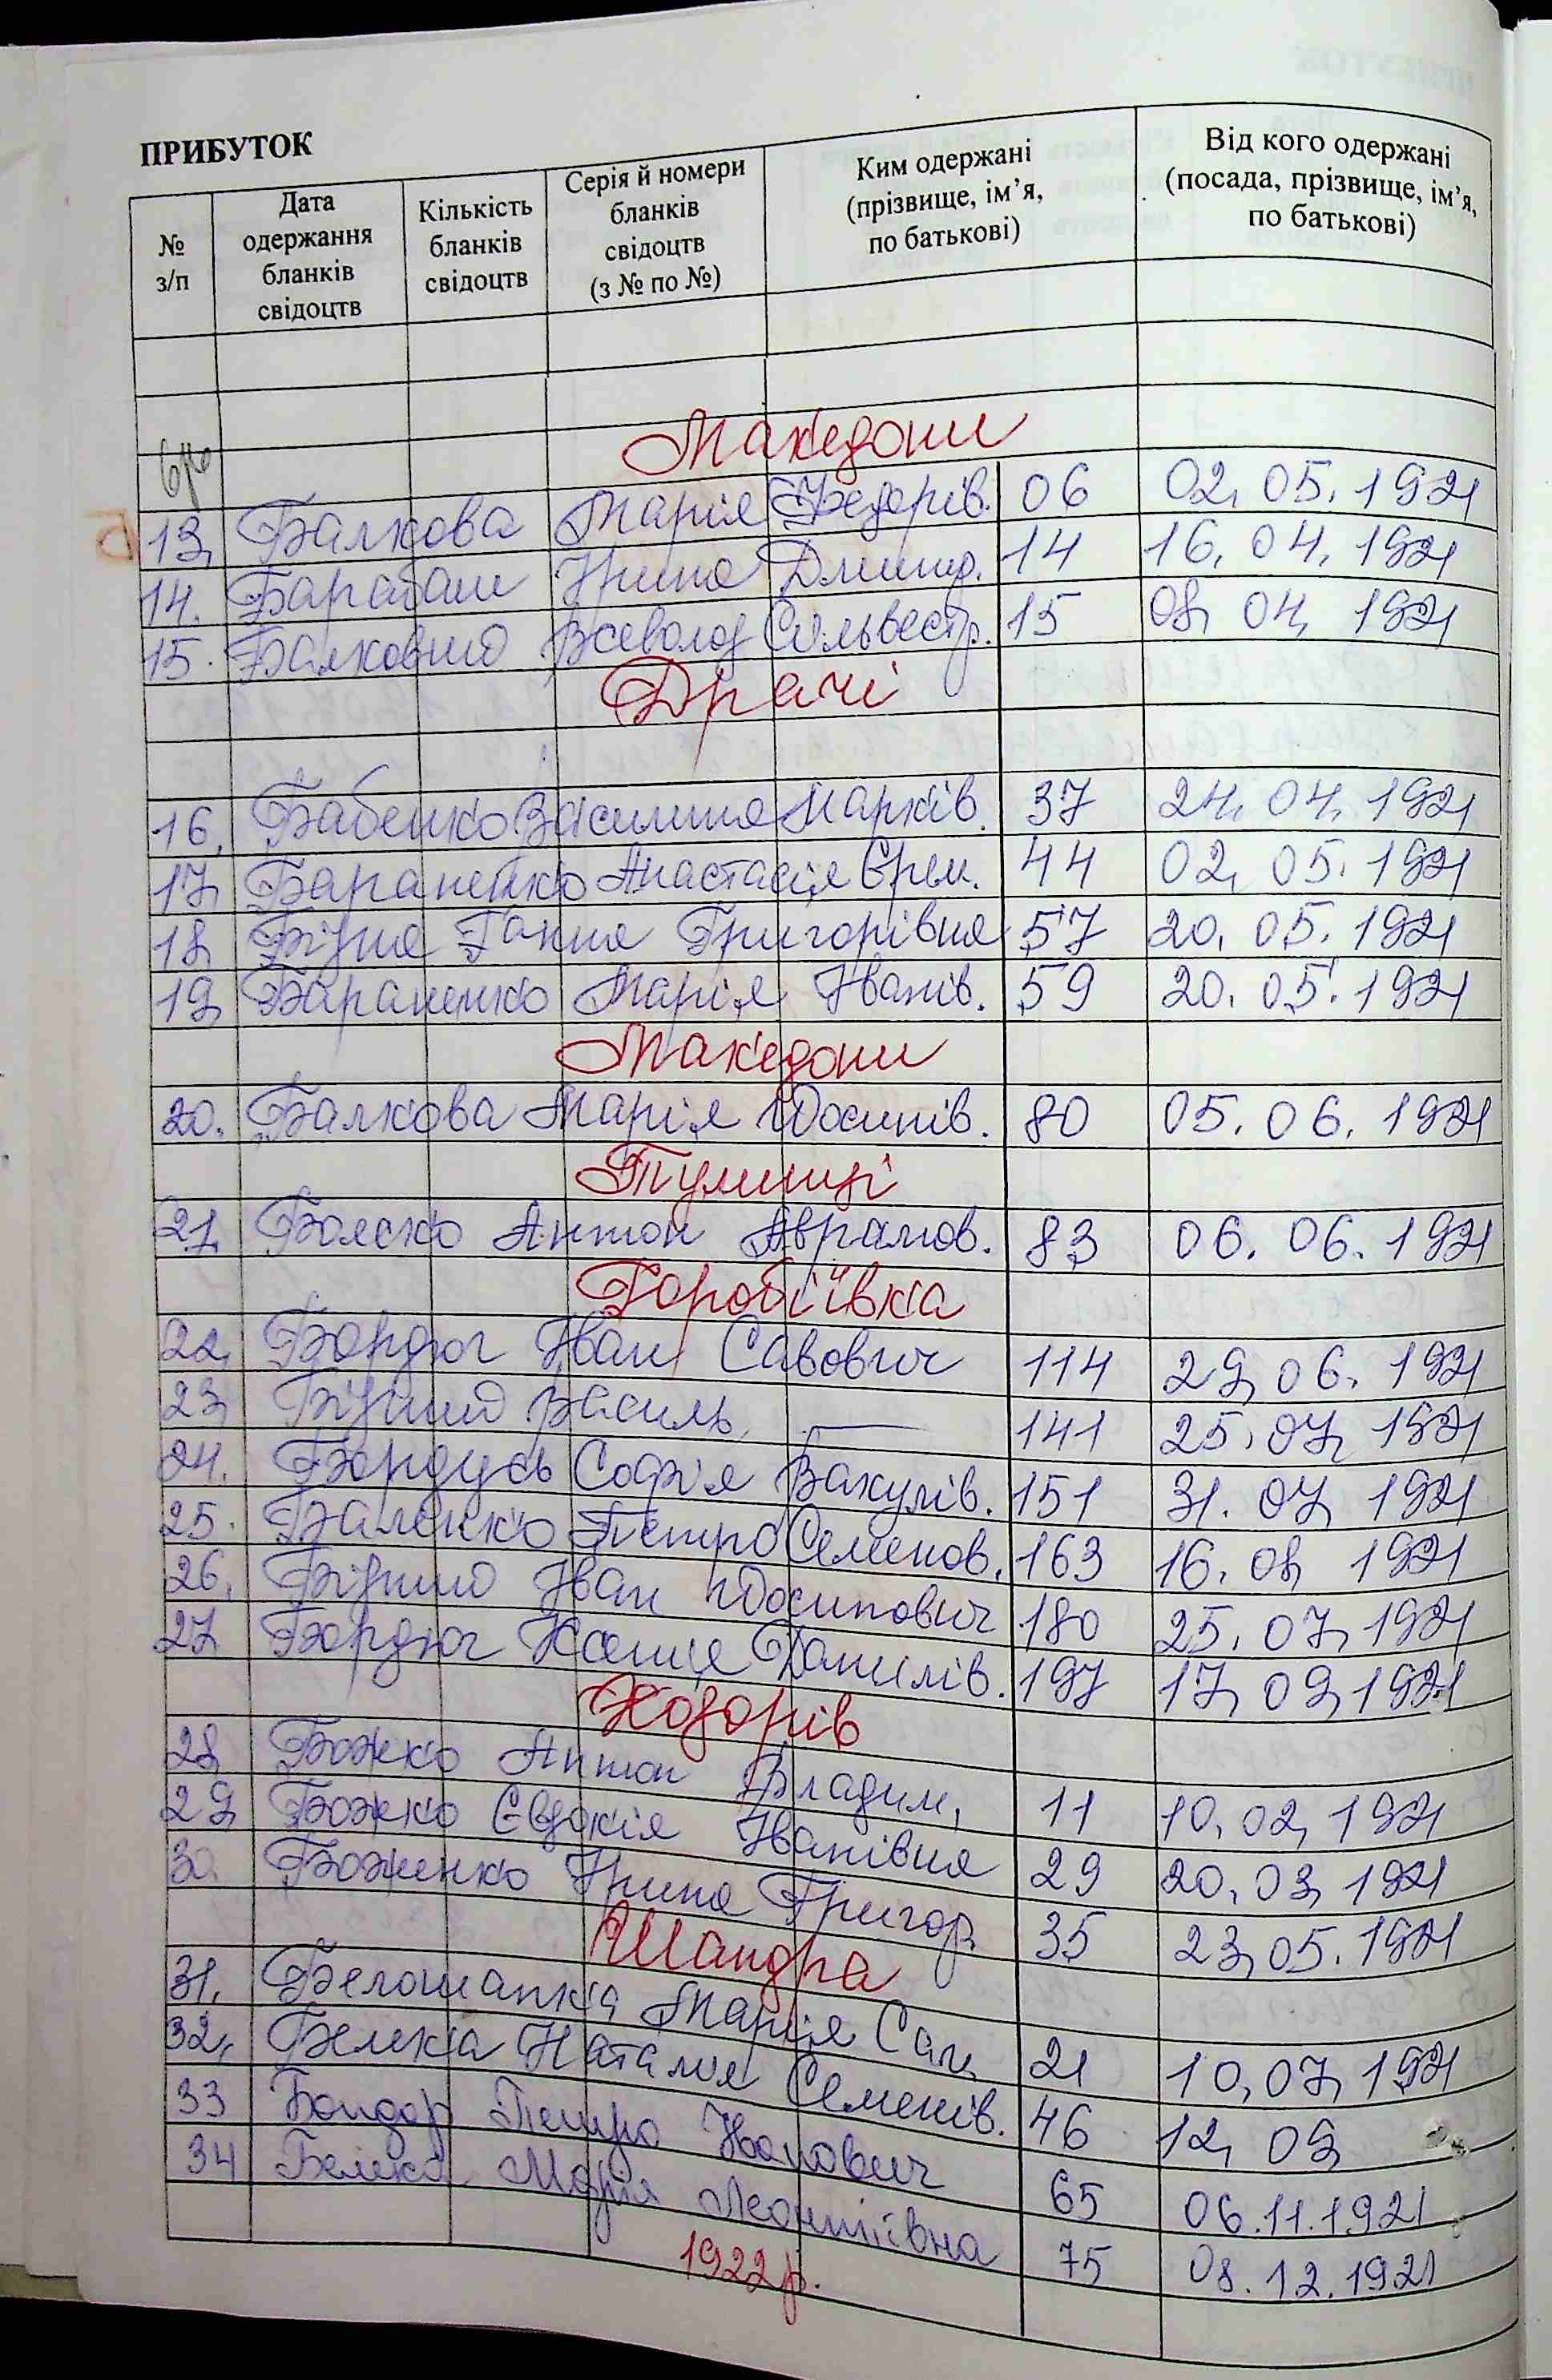 ПРИБУТОК
№ з/п
Дата одержання бланків свідоцтв
Кількість бланків свідоцтв
Серія й номери бланків свідоцтв (з № по №)
Ким одержані (прізвище, ім’я, по батькові)
Від кого одержані (посада, прізвище, ім’я, по батькові)
Македони
Б 13. Балкова Марія Федорів. 06 02.05.1921
14. Барабаш Ірина Дмитр. 14 16.04.1921
15. Балковий Всеволод Сильвестр. 15 08.04.1921
Драчі
16. Бабенко Василина Марків. 37 24.04.1921
17. Бараненко Анастасія Єрем. 44 02.05.1921
18. Бідна Ганна Григорівна 57 20.05.1921
19. Бараненко Марія Іванів. 59 20.05.1921
Македони
20. Балкова Марія Йосипів. 80 05.06.1921
Тулинці
21. Болеско Антон Аврамов. 83 06.06.1921
Горобіївка
22. Бордюг Іван Савович 114 29.06.1921
23. Бідний Василь — 141 25.07.1921
24. Бордусь Софія Вакулів. 151 31.07.1921
25. Баленко Петро Семенов. 163 16.08.1921
26. Бідний Іван Йосипович 180 25.07.1921
27. Бордюг Ксенія Данилів. 197 17.09.1921
Ходорів
28. Божко Антон Владим. 11 10.02.1921
29. Божко Євдокія Іванівна 29 20.03.1921
30. Боженко Ірина Григор. 35 23.05.1921
Шандра
31. Белошапка Марія Сав. 21 10.07.1921
32. Белека Наталія Семенів. 46 12.09
33 Бондар Петро Іванович 65 06.11.1921
34 Белека Марія Леонтіївна 75 08.12.1921
1922р.